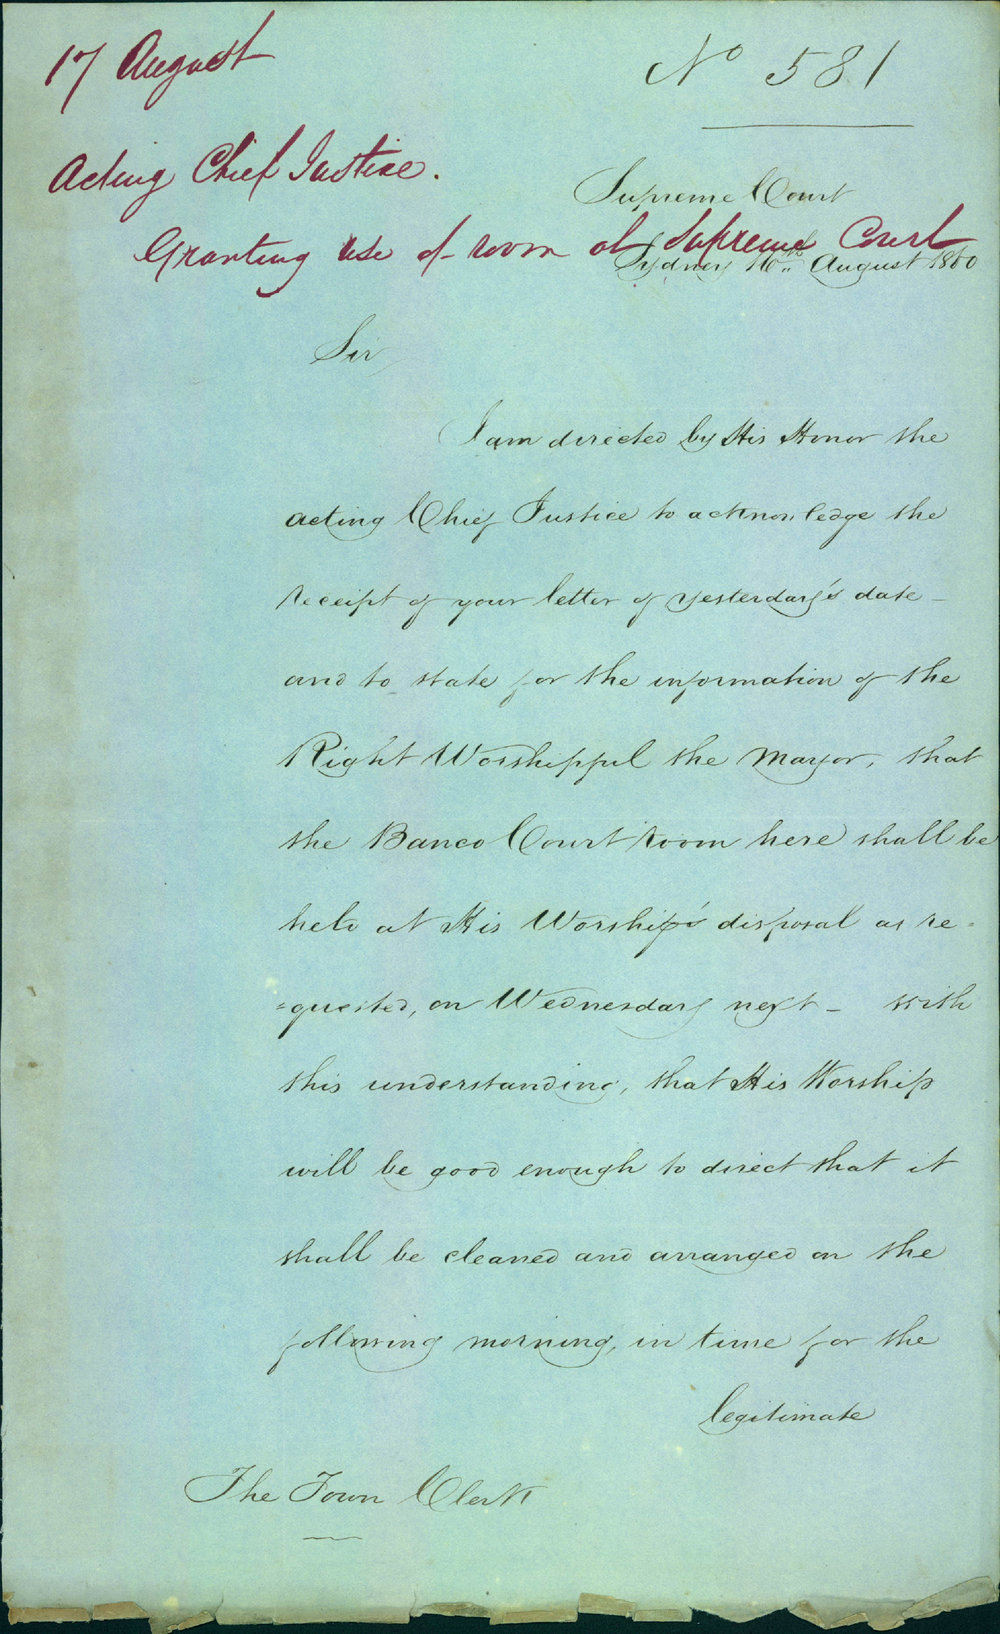 17 August
No 581
Acting Chief Justice.
Supreme Court
Granting use of room at Supreme Court
Sydney 16th August 1860
Sir
I am directed by His Honor the
acting Chief Justice to acknowledge the
receipt of your letter of yesterday's date -
and to state for the information of the
Right Worshipful the Mayor, that
the Banco Court room here shall be
held at His Worship's disposal as re-
=quested, on Wednesday next - with
this understanding, that His Worship
will be good enough to direct that it
shall be cleaned and arranged on the
following morning, in time for the
legitimate
The Town Clerk